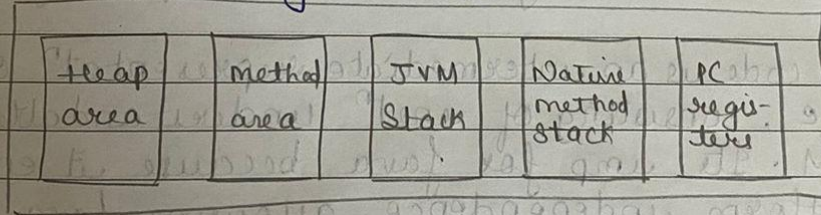 Heap
area
method
area
JVM
Stack
Native
method
stack
PC
regis-
ters